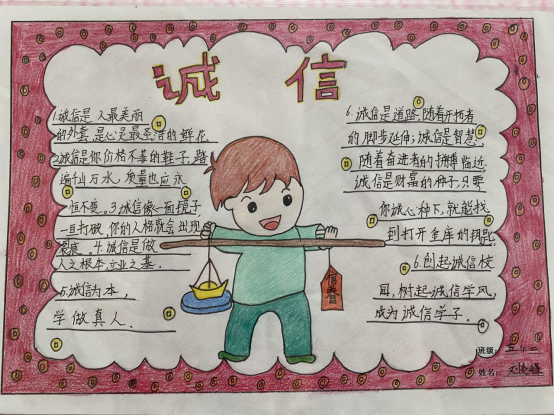 诚 信
1.诚信是人最美丽
的外套,是心灵最圣洁的鲜花
2.诚信是你价格不菲的鞋子,踏
遍千山万水,质量也应永
恒不变。3.诚信像一面镜子,
一旦打破,你的人格就会出现
裂痕。4.诚信是做
人之根本,立业之基。
5.诚信为本,
学做真人.
6.诚信是道路,随着开拓者
的脚步延伸;诚信是智慧,
随着奋进者的拼搏临近;
诚信是财富的种子,只要
你诚心种下,就能找
到打开金库的钥匙.
6.创起诚信校
园,树起诚信学风,
成为诚信学子.
班级:五年二
姓名: